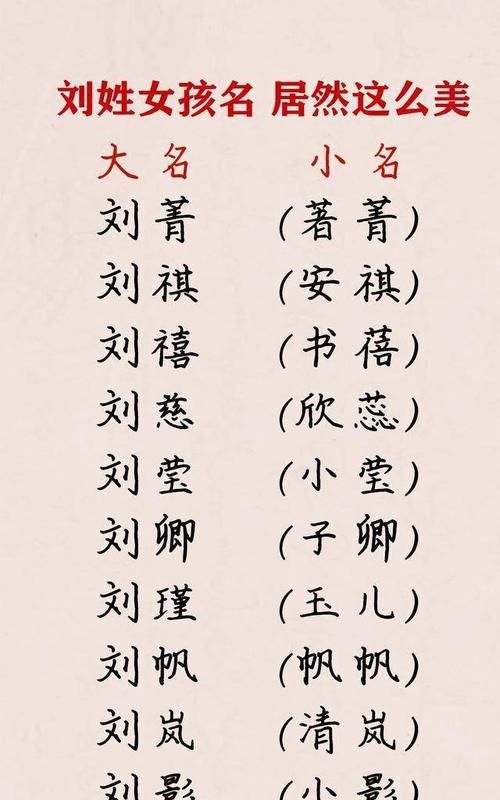 刘姓女孩名 居然这么美
大名 小名
刘菁 (著菁)
刘祺 (安祺)
刘禧 (书蓓)
刘慈 (欣蕊)
刘莹 (小莹)
刘卿 (子卿)
刘瑾 (玉儿)
刘帆 (帆帆)
刘岚 (清岚)
刘影 (小影)